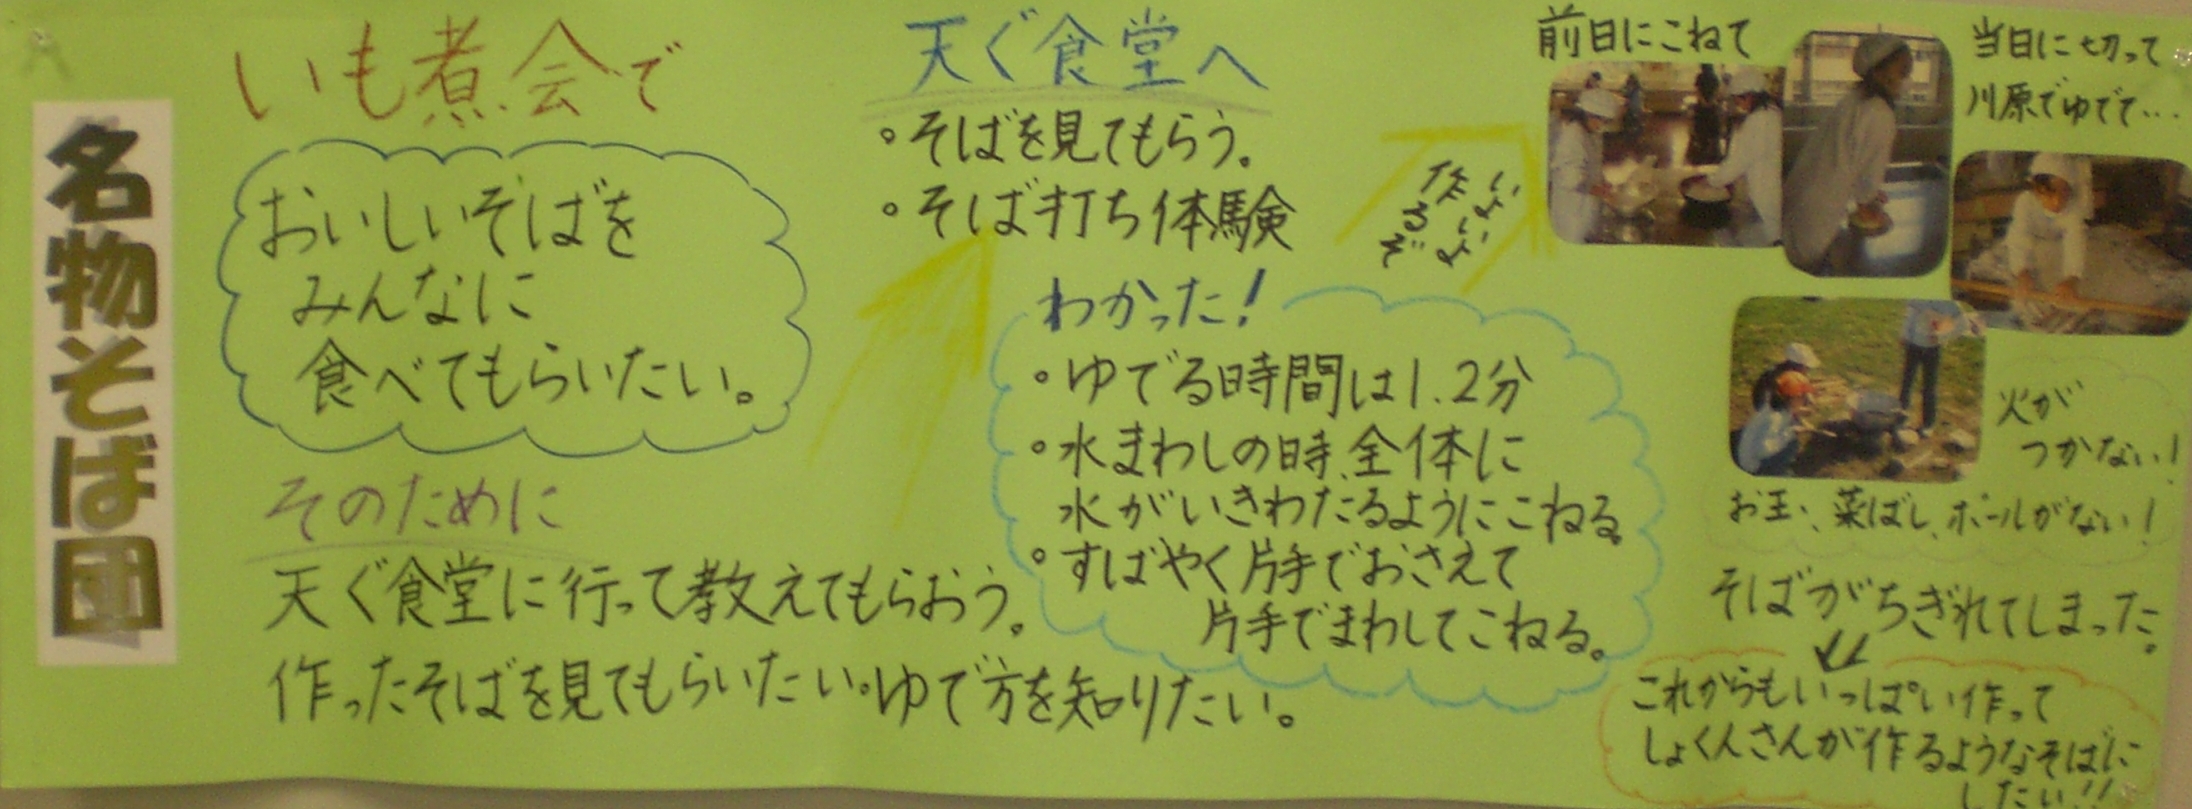 名物そば団
いも煮会で
おいしいそばを
みんなに
食べてもらいたい。
そのために
天ぐ食堂に行って教えてもらおう。
作ったそばを見てもらいたい。ゆで方を知りたい。
天ぐ食堂へ
・そばを見てもらう。
・そば打ち体験
わかった!
・ゆでる時間は1.2分
・水まわしの時、全体に
水がいきわたるようにこねる。
・すばやく片手でおさえて
片手でまわしてこねる。
いよいよ
作るぞ
前日にこねて
当日に切って
川原でゆでて…
火が
つかない!
お玉、菜ばし、ボールがない!
そばがちぎれてしまった。
これからもいっぱい作って
しょくんさんが作るようなそばに
したい!!